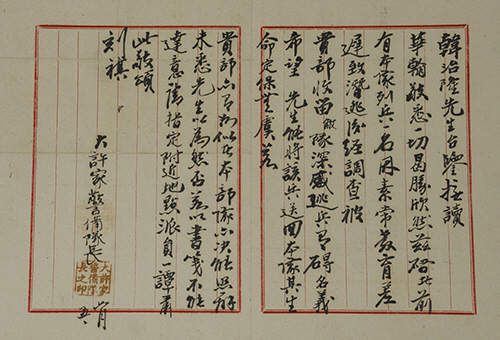 韓治隆先生台鑒拜讀
華翰敬悉一切曷勝欣然茲啓者前
有本隊列兵名因素常教育差
遲致潛逃後經調查被
貴部收留敝隊深感逃兵有碍名義
希望 先生能將該兵送回本隊其生
命定保無虞若
貴部亦有類似在本部隊亦決能照辦
未悉先生以為然否若以書箋不能
達意請指定附近地點派員一譚肅
此敬頌
刻祺
大許家警備隊長
大許家警備隊長之印
月